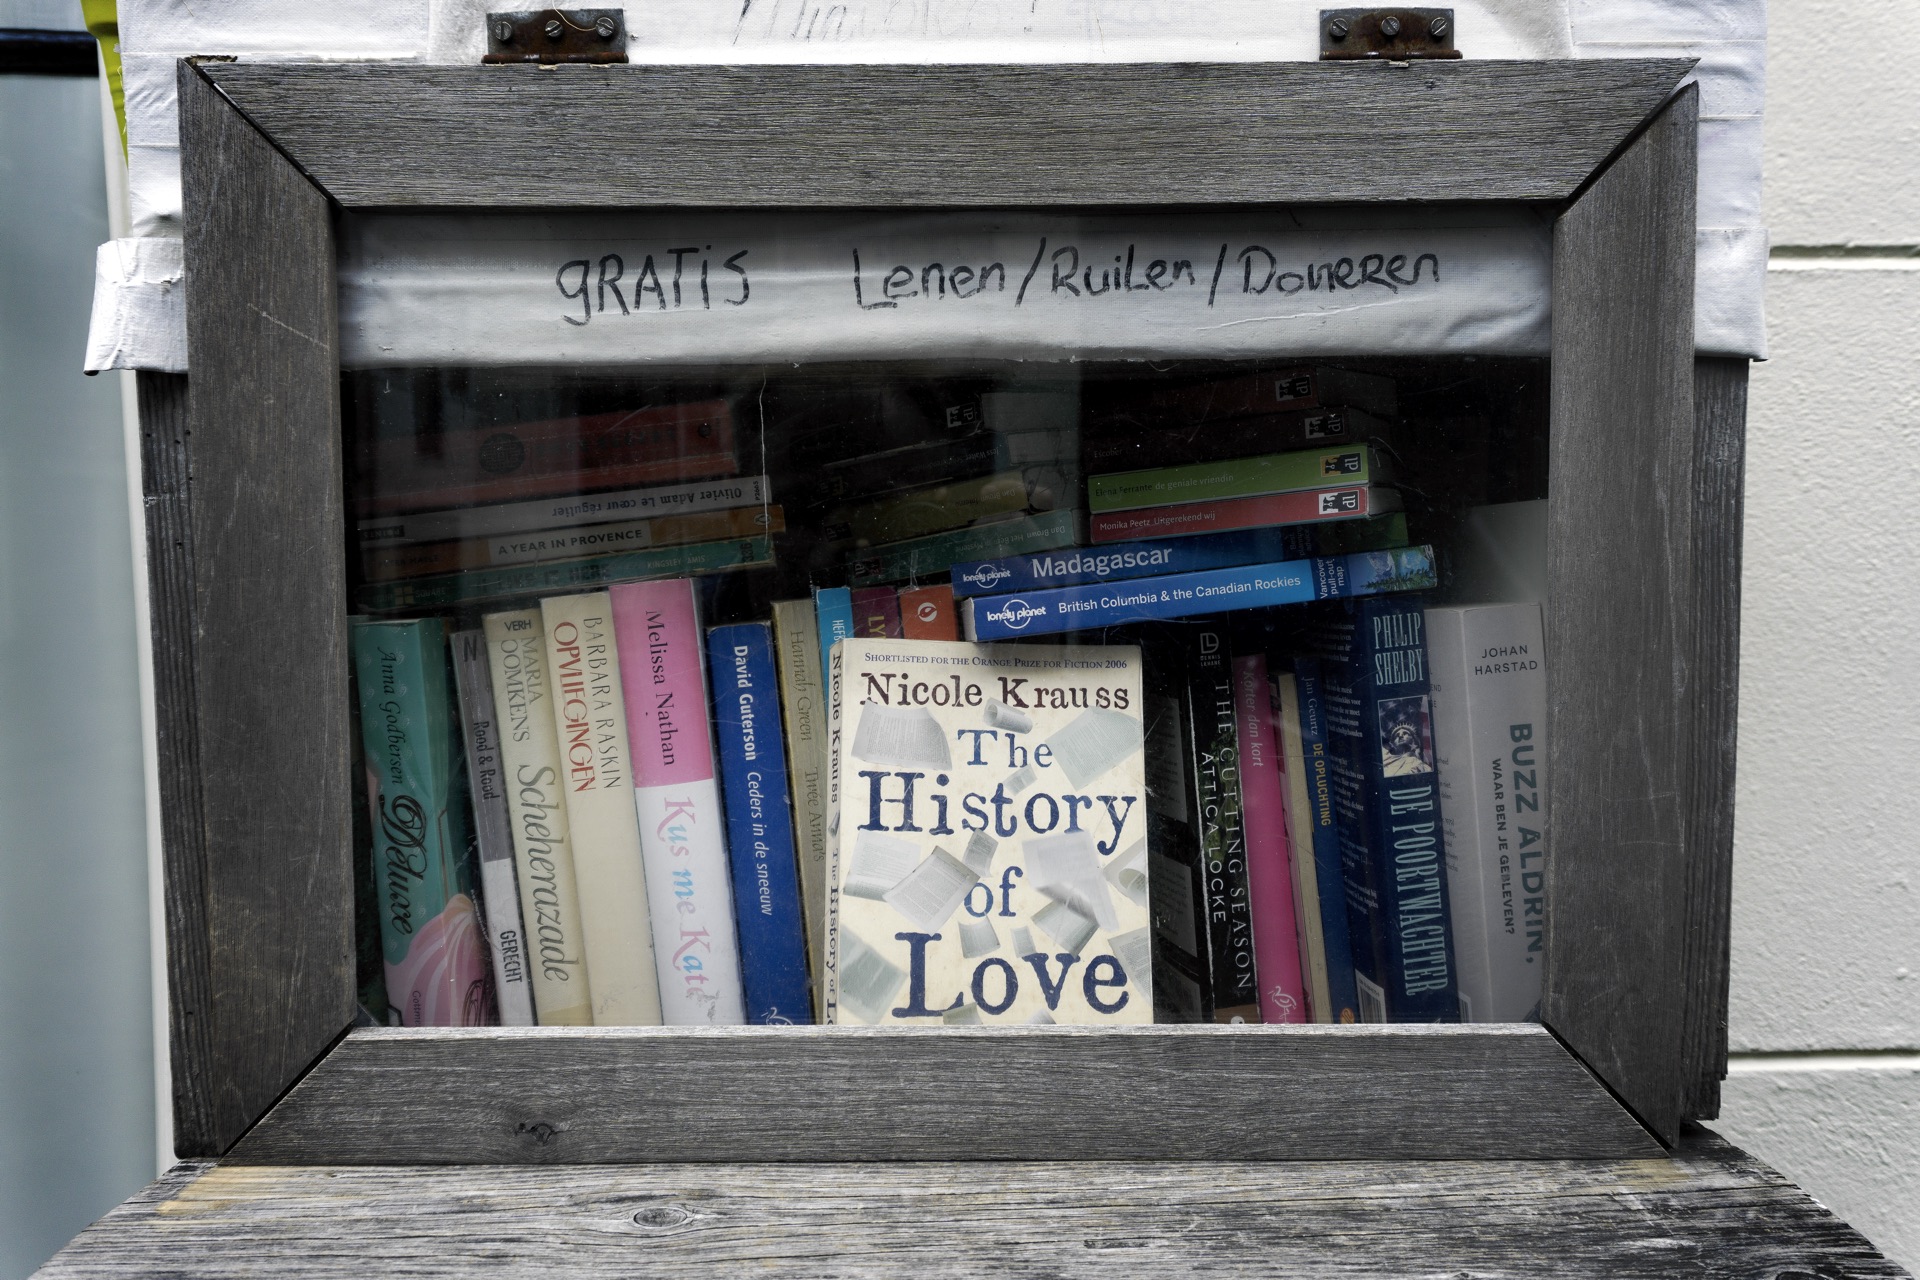 GRATIS Lenen/Ruilen/Doneren
Olivier Adam Le cœur régulier
A YEAR IN PROVENCE
KINGSLEY AMIS
Elena Ferrante de geniale vriendin
Monika Peetz Uitgerekend wij
lonely planet Madagascar
lonely planet British Columbia & the Canadian Rockies
Anna Godbersen Deluxe
Rood & Rood GERECHT
VERH
MARIA OOMKENS Scheherazade
BARBARA RASKIN OPVLIEGINGEN
Melissa Nathan Kus me Kate
David Guterson Ceders in de sneeuw
Hannah Green Twee Anna's
Nicole Krauss The History of
SHORTLISTED FOR THE ORANGE PRIZE FOR FICTION 2006
Nicole Krauss
The
History
of
Love
DENNIS LEHANE
THE CUTTING SEASON
ATTICA LOCKE
Korter dan kort
Jan Geurtz DE OPLUCHTING
PHILIP SHELBY DE POORTWACHTER
JOHAN HARSTAD
BUZZ ALDRIN,
WAAR BEN JE GEBLEVEN?